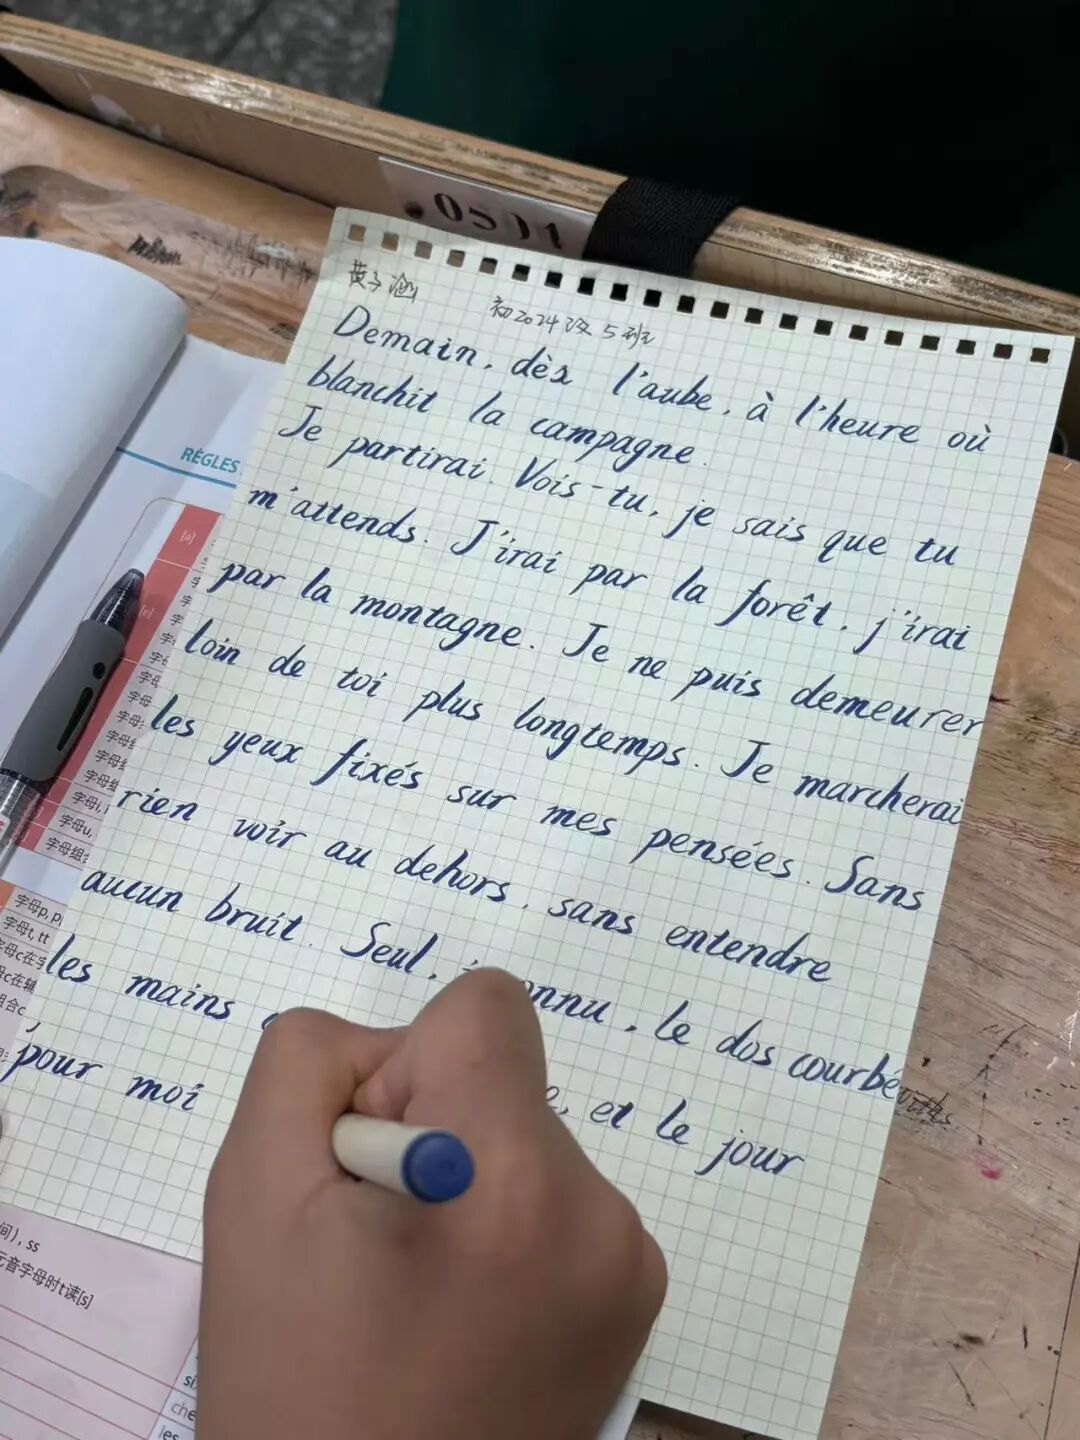 .0591
黄子涵 初2024级5班
Demain, dès l'aube, à l'heure où
blanchit la campagne.
Je partirai. Vois-tu, je sais que tu
m'attends. J'irai par la forêt, j'irai
par la montagne. Je ne puis demeurer
loin de toi plus longtemps. Je marcherai
les yeux fixés sur mes pensées. Sans
rien voir au dehors, sans entendre
aucun bruit. Seul, le dos courbé,
les mains
pour moi et le jour
RÈGLES
[a]
[e]
字母i,
字母u,
字母组
字母p, p
字母t, tt
母c在
组合c
间), ss
元音字母时t读[s]
che
les